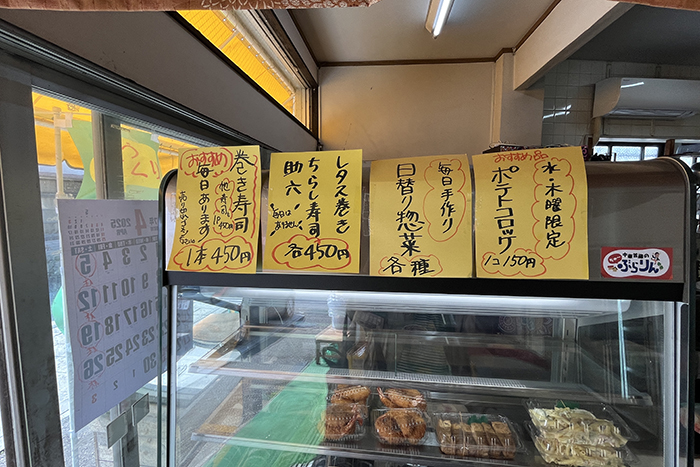 おすすめ
巻き寿司
毎日あります
1本450円
レタス巻き
ちらし寿司
助六
毎日は
ありません。
各450円
毎日手作り
日替り惣菜
各種
おすすめ
水・木曜限定
ポテトコロッケ
1コ150円
ぷらりん
4
2025
5
2 3 4
12
9 10 11
19
16 17 18
26
23 24 25
30